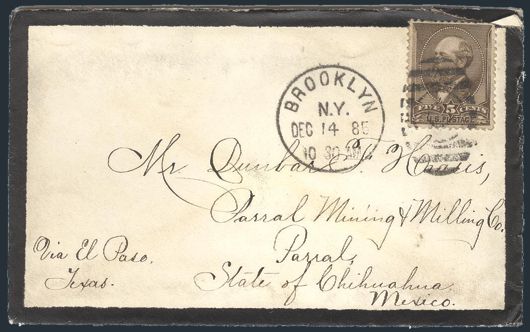 BROOKLYN
N.Y.
DEC 14 85
10 30 AM
FIVE 5 CENTS
U.S. POSTAGE
Mr Dunbar F. Harris,
Parral Mining & Milling Co.
Parral,
State of Chihuahua
Mexico.
Via El Paso.
Texas.